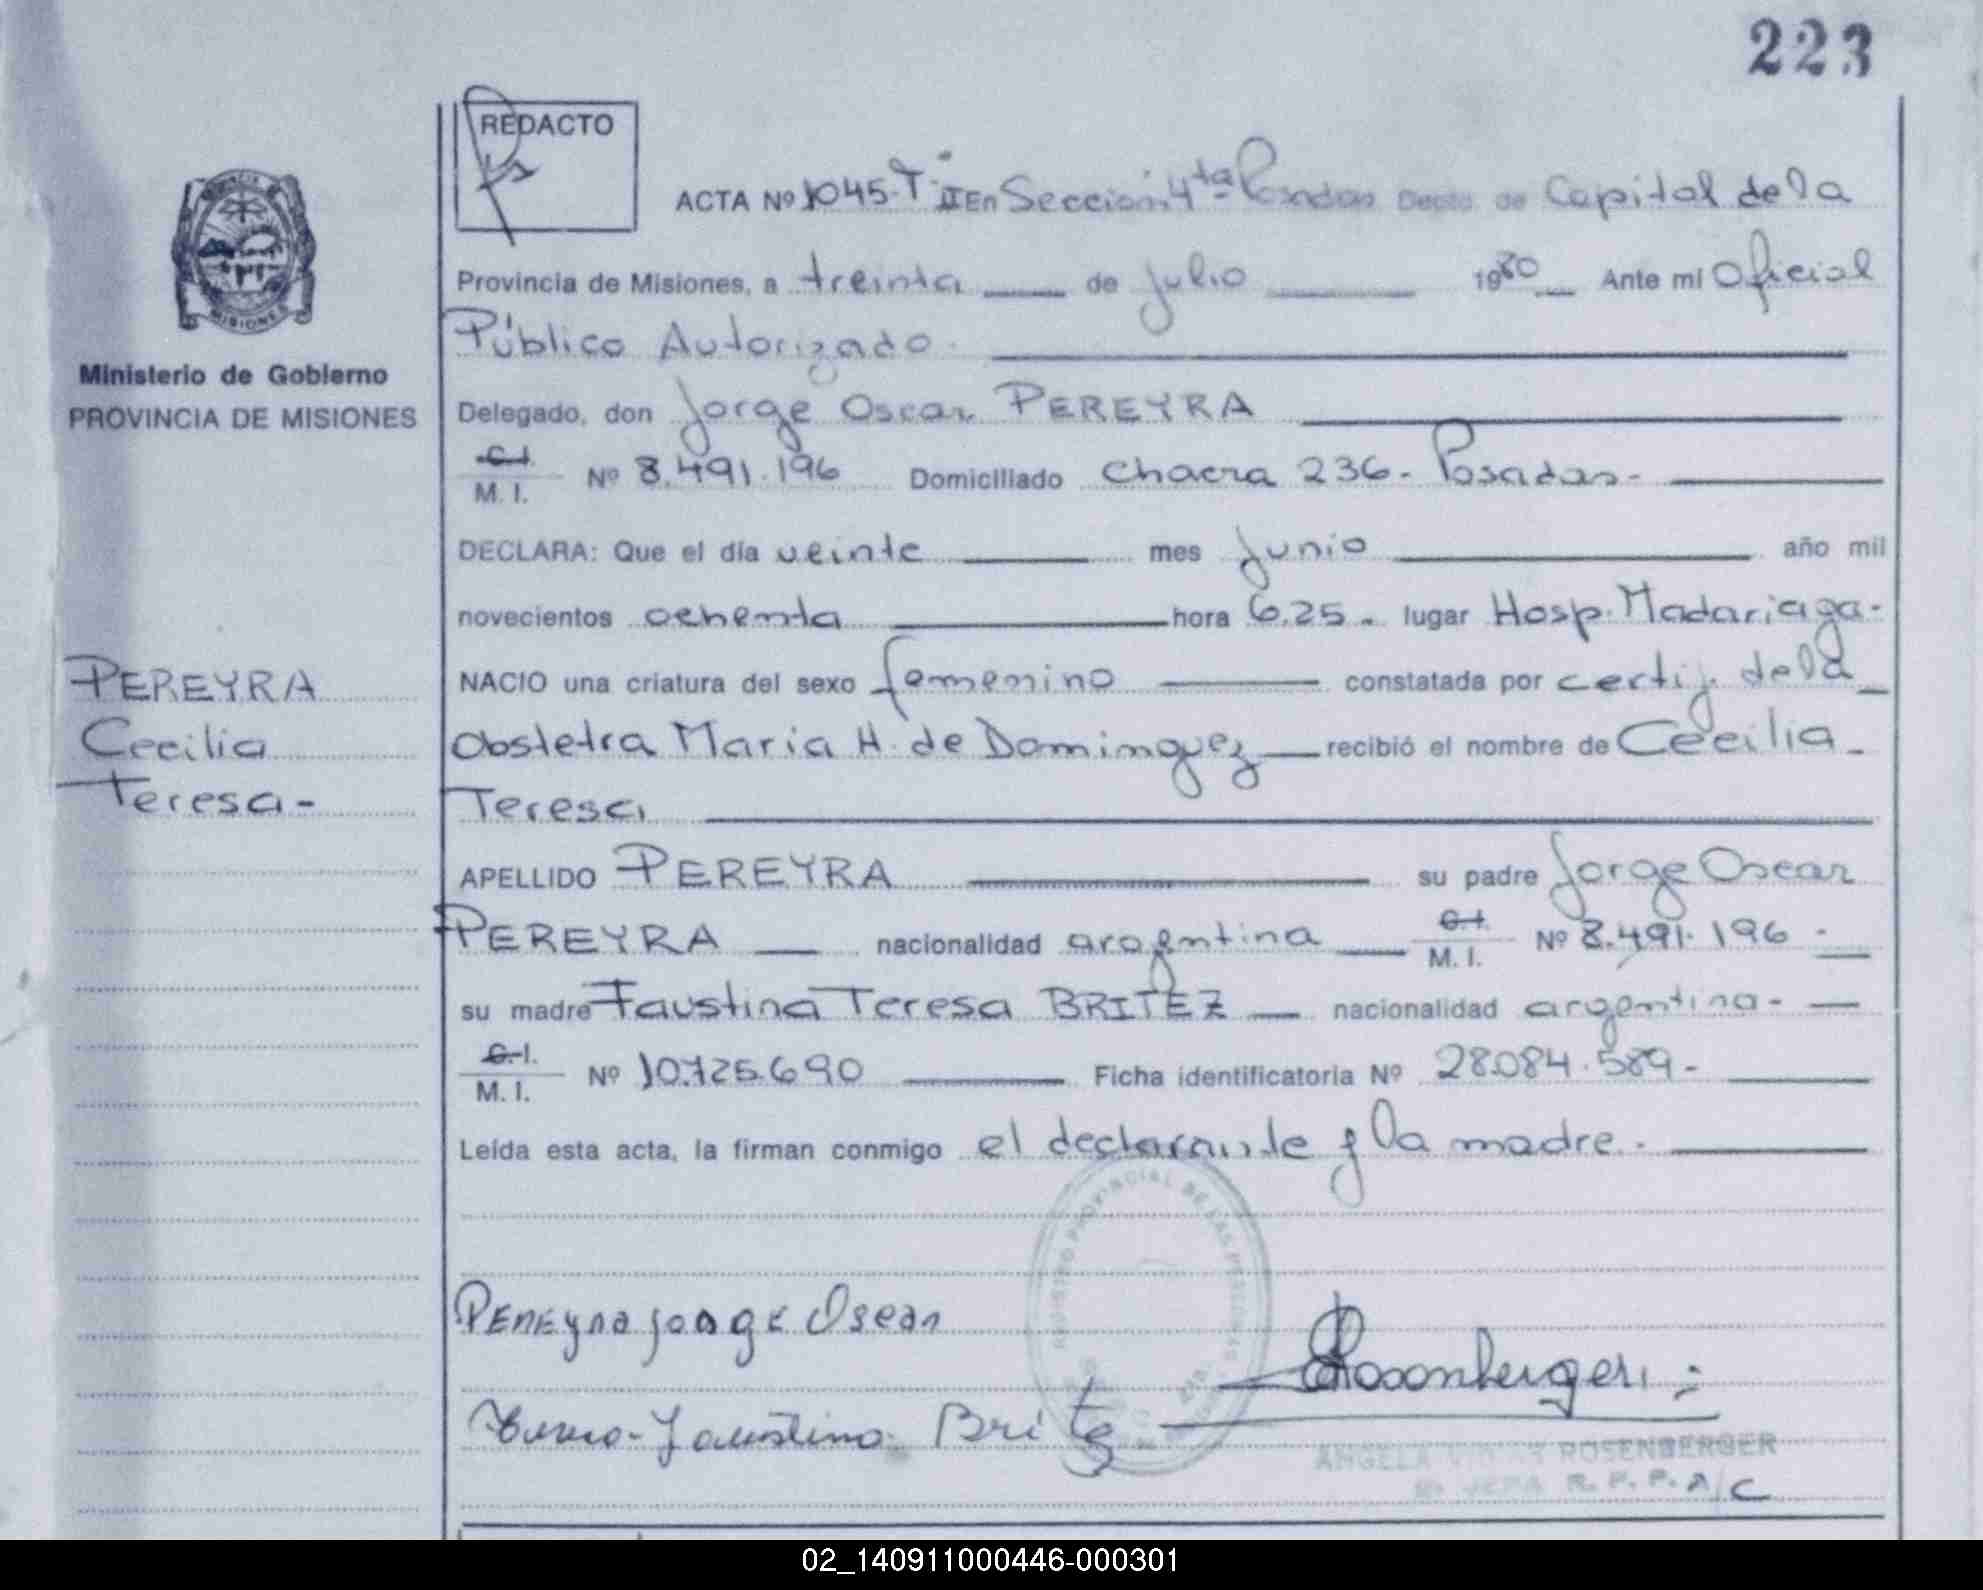 223
REDACTO
ACTA Nº 1045-T II En Sección 4ta Posadas Depto de Capital de la
Provincia de Misiones, a treinta de julio 1980 Ante mi Oficial
Público Autorizado.
Ministerio de Gobierno
PROVINCIA DE MISIONES
Delegado, don Jorge Oscar PEREYRA
C.I.
M. I. Nº 8.491.196 Domiciliado Chacra 236 - Posadas -
DECLARA: Que el día veinte mes junio año mil
novecientos ochenta hora 6.25 - lugar Hosp. Madariaga -
PEREYRA
Cecilia
Teresa -
NACIO una criatura del sexo femenino constatada por certif. de la
Obstetra Maria H. de Dominguez recibió el nombre de Cecilia
Teresa
APELLIDO PEREYRA su padre Jorge Oscar
PEREYRA nacionalidad argentina C.I.
M. I. Nº 8.491.196 -
su madre Faustina Teresa BRITEZ nacionalidad argentina -
C.I.
M. I. Nº 10.725.690 Ficha identificatoria Nº 28.084.589 -
Leída esta acta, la firman conmigo el declarante y la madre -
REGISTRO PROVINCIAL DE LAS PERSONAS
Pereyra Jorge Oscar
Rosenberger
Faustina Britez
ANGELA ROSENBERGER
R. P. P. A/C
MISIONES
02_140911000446-000301